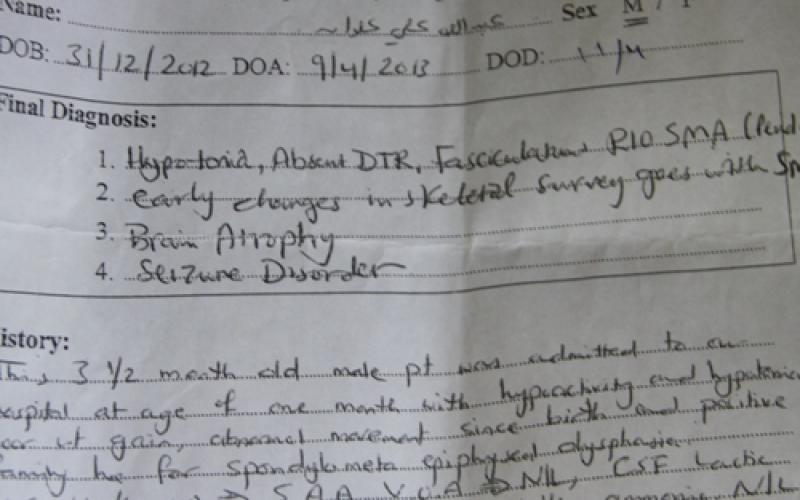 Name: Sex M /
DOB: 31/12/2012 DOA: 9/4/2013 DOD: 11/4
Final Diagnosis:
1. Hypotonia, Absent DTR, Fasciculations R/O SMA (
2. early changes in skeletal survey goes with
3. Brain Atrophy
4. Seizure Disorder
istory:
This 3 1/2 month old male pt was admitted to our
hospital at age of one month with hypoactivity and hypotonia
poor wt gain, abnormal movement since birth and positive
family hx for spondylometa epiphyseal dysphasia
SAA VGA NL, CSF Lactic
N/L